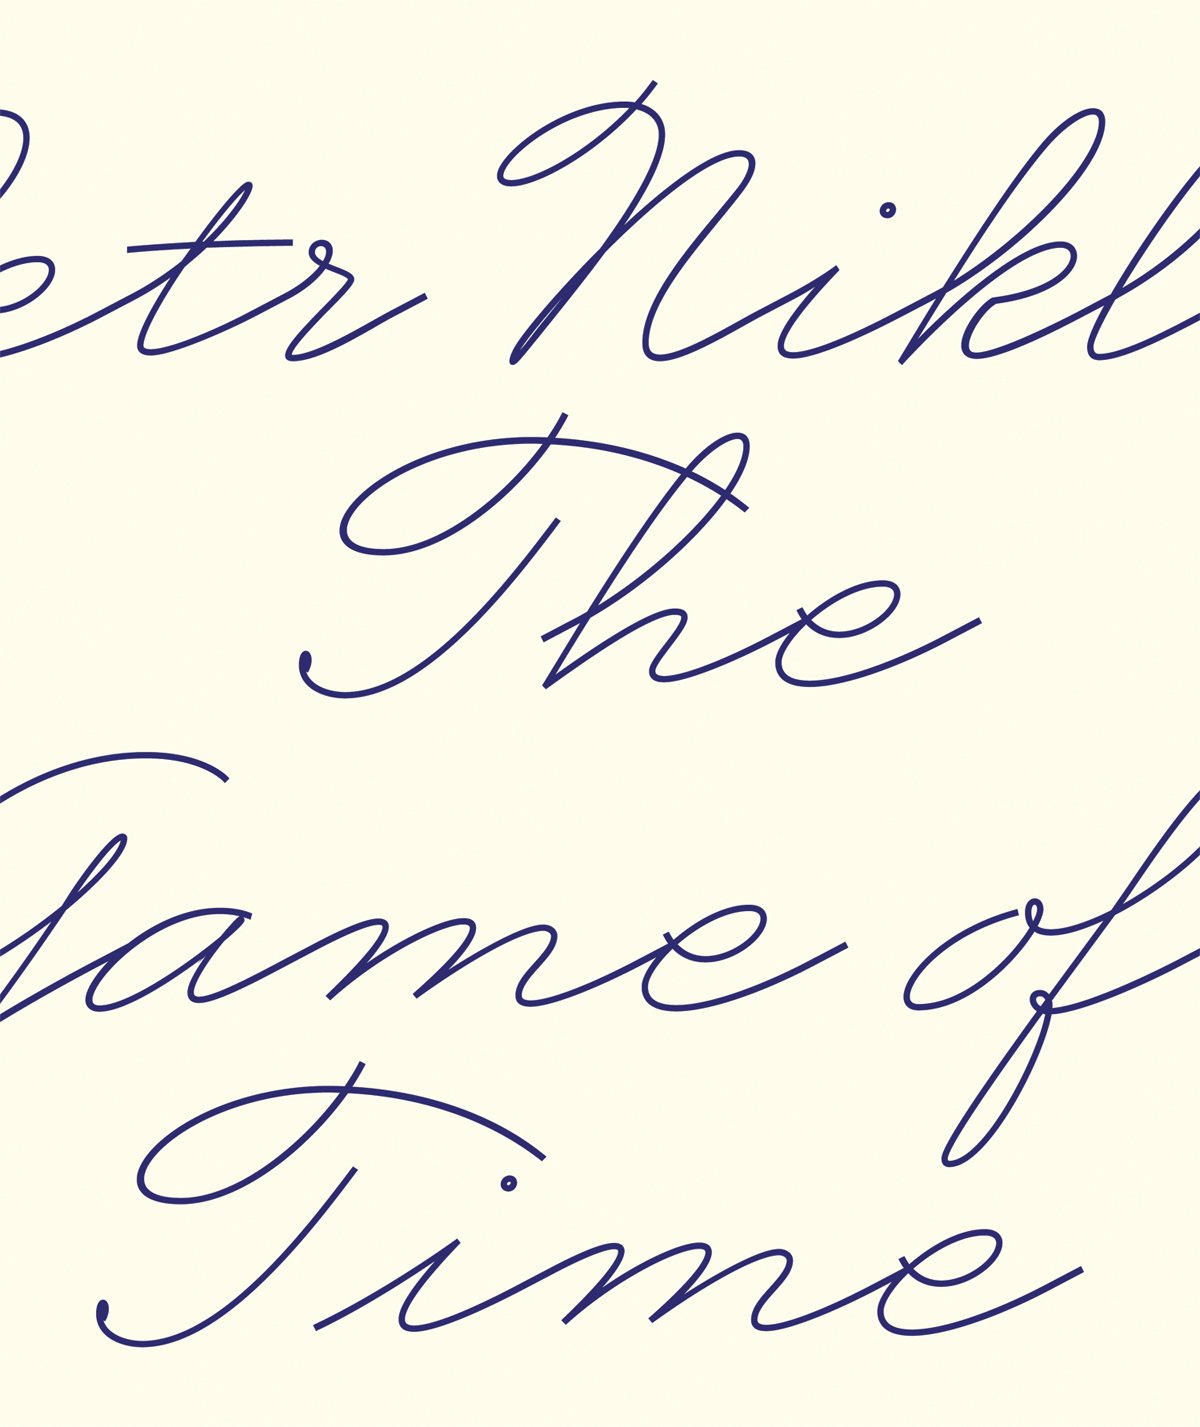 Petr Nikl
The
Game of
Time